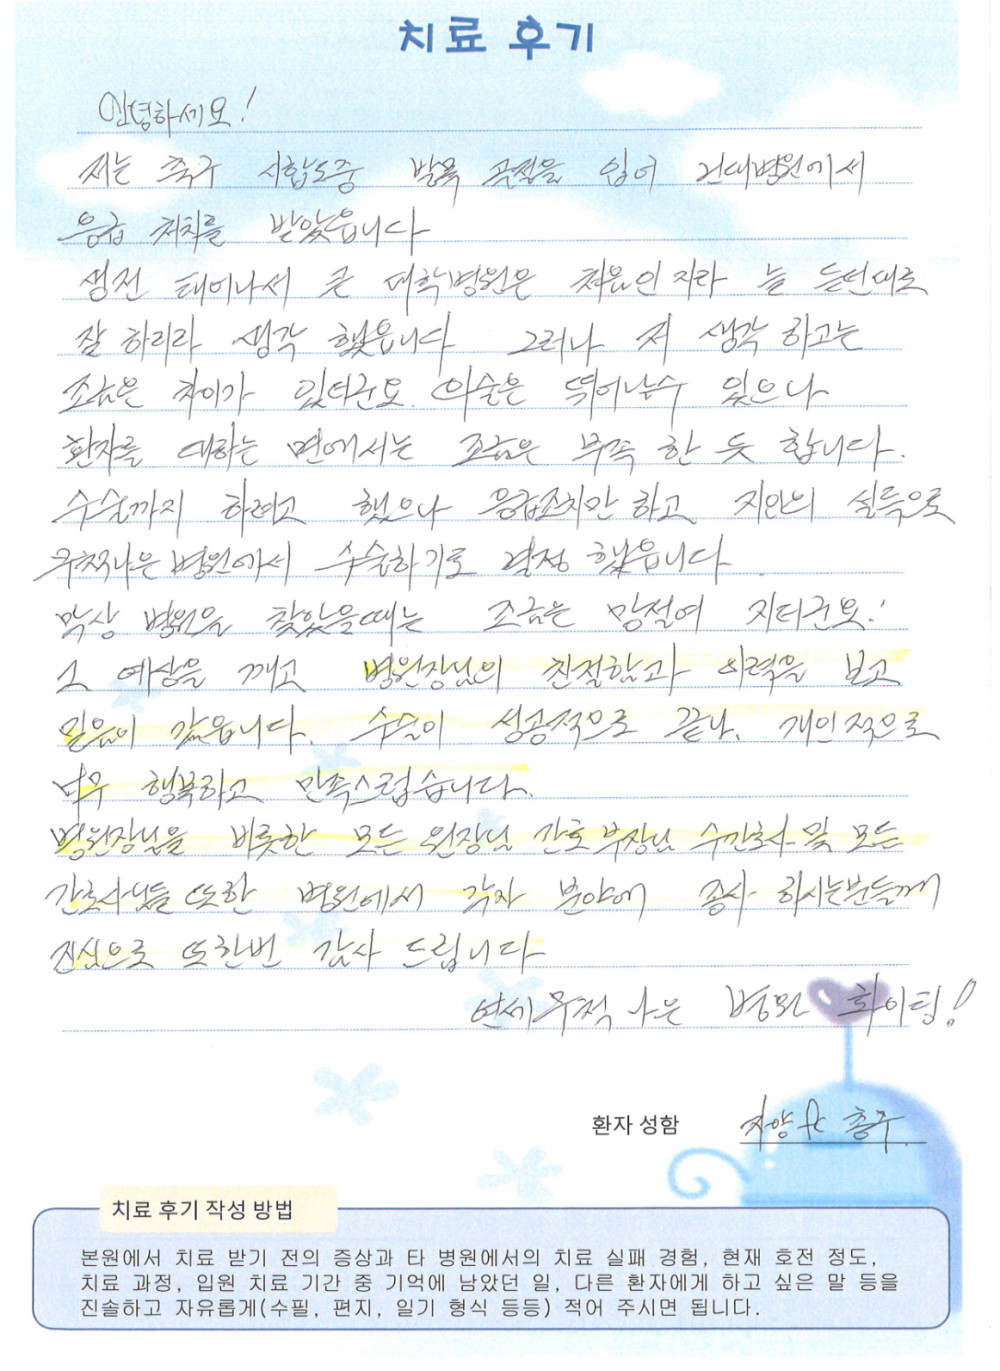 치료 후기
안녕하세요!
저는 족구 시합도중 발목 골절을 입어 건대병원에서
응급 처치를 받았읍니다
생전 태어나서 큰 대학병원은 처음인지라 늘 듣던대로
잘 하리라 생각 했읍니다 그러나 저 생각 하고는
조금은 차이가 있더군요. 의술은 뛰어날수 있으나
환자를 대하는 면에서는 조금은 부족 한 듯 합니다.
수술까지 하려고 했으나 응급조치만 하고 지인의 설득으로
무척나은병원에서 수술하기로 결정 했읍니다.
막상 병원을 찾았을때는 조금은 망설여 지더군요!
그 예상을 깨고 병원장님의 친절함과 이력을 보고
믿음이 갔읍니다. 수술이 성공적으로 끝나. 개인적으로
너무 행복하고 만족스럽습니다.
병원장님을 비롯한 모든 원장님 간호부장님 수간호사 및 모든
간호사님들 또한 병원에서 각자 분야에 종사 하시는분들께
진심으로 또한번 감사 드립니다
연세무척 나은 병원 화이팅!
환자 성함
치료 후기 작성 방법
본원에서 치료 받기 전의 증상과 타 병원에서의 치료 실패 경험, 현재 호전 정도,
치료 과정, 입원 치료 기간 중 기억에 남았던 일, 다른 환자에게 하고 싶은 말 등을
진솔하고 자유롭게(수필, 편지, 일기 형식 등등) 적어 주시면 됩니다.